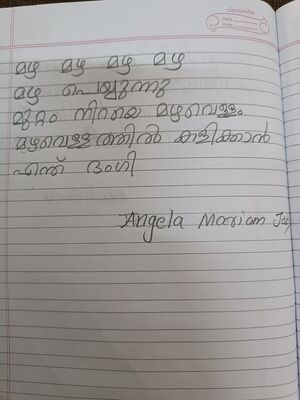 classmate
Date
Page
മഴ മഴ മഴ മഴ
മഴ പെയ്യുന്നു
മുറ്റം നിറയെ മഴവെള്ളം
മഴവെള്ളത്തിൽ കളിക്കാൻ
എന്ത് ഭംഗി
Angela Mariam